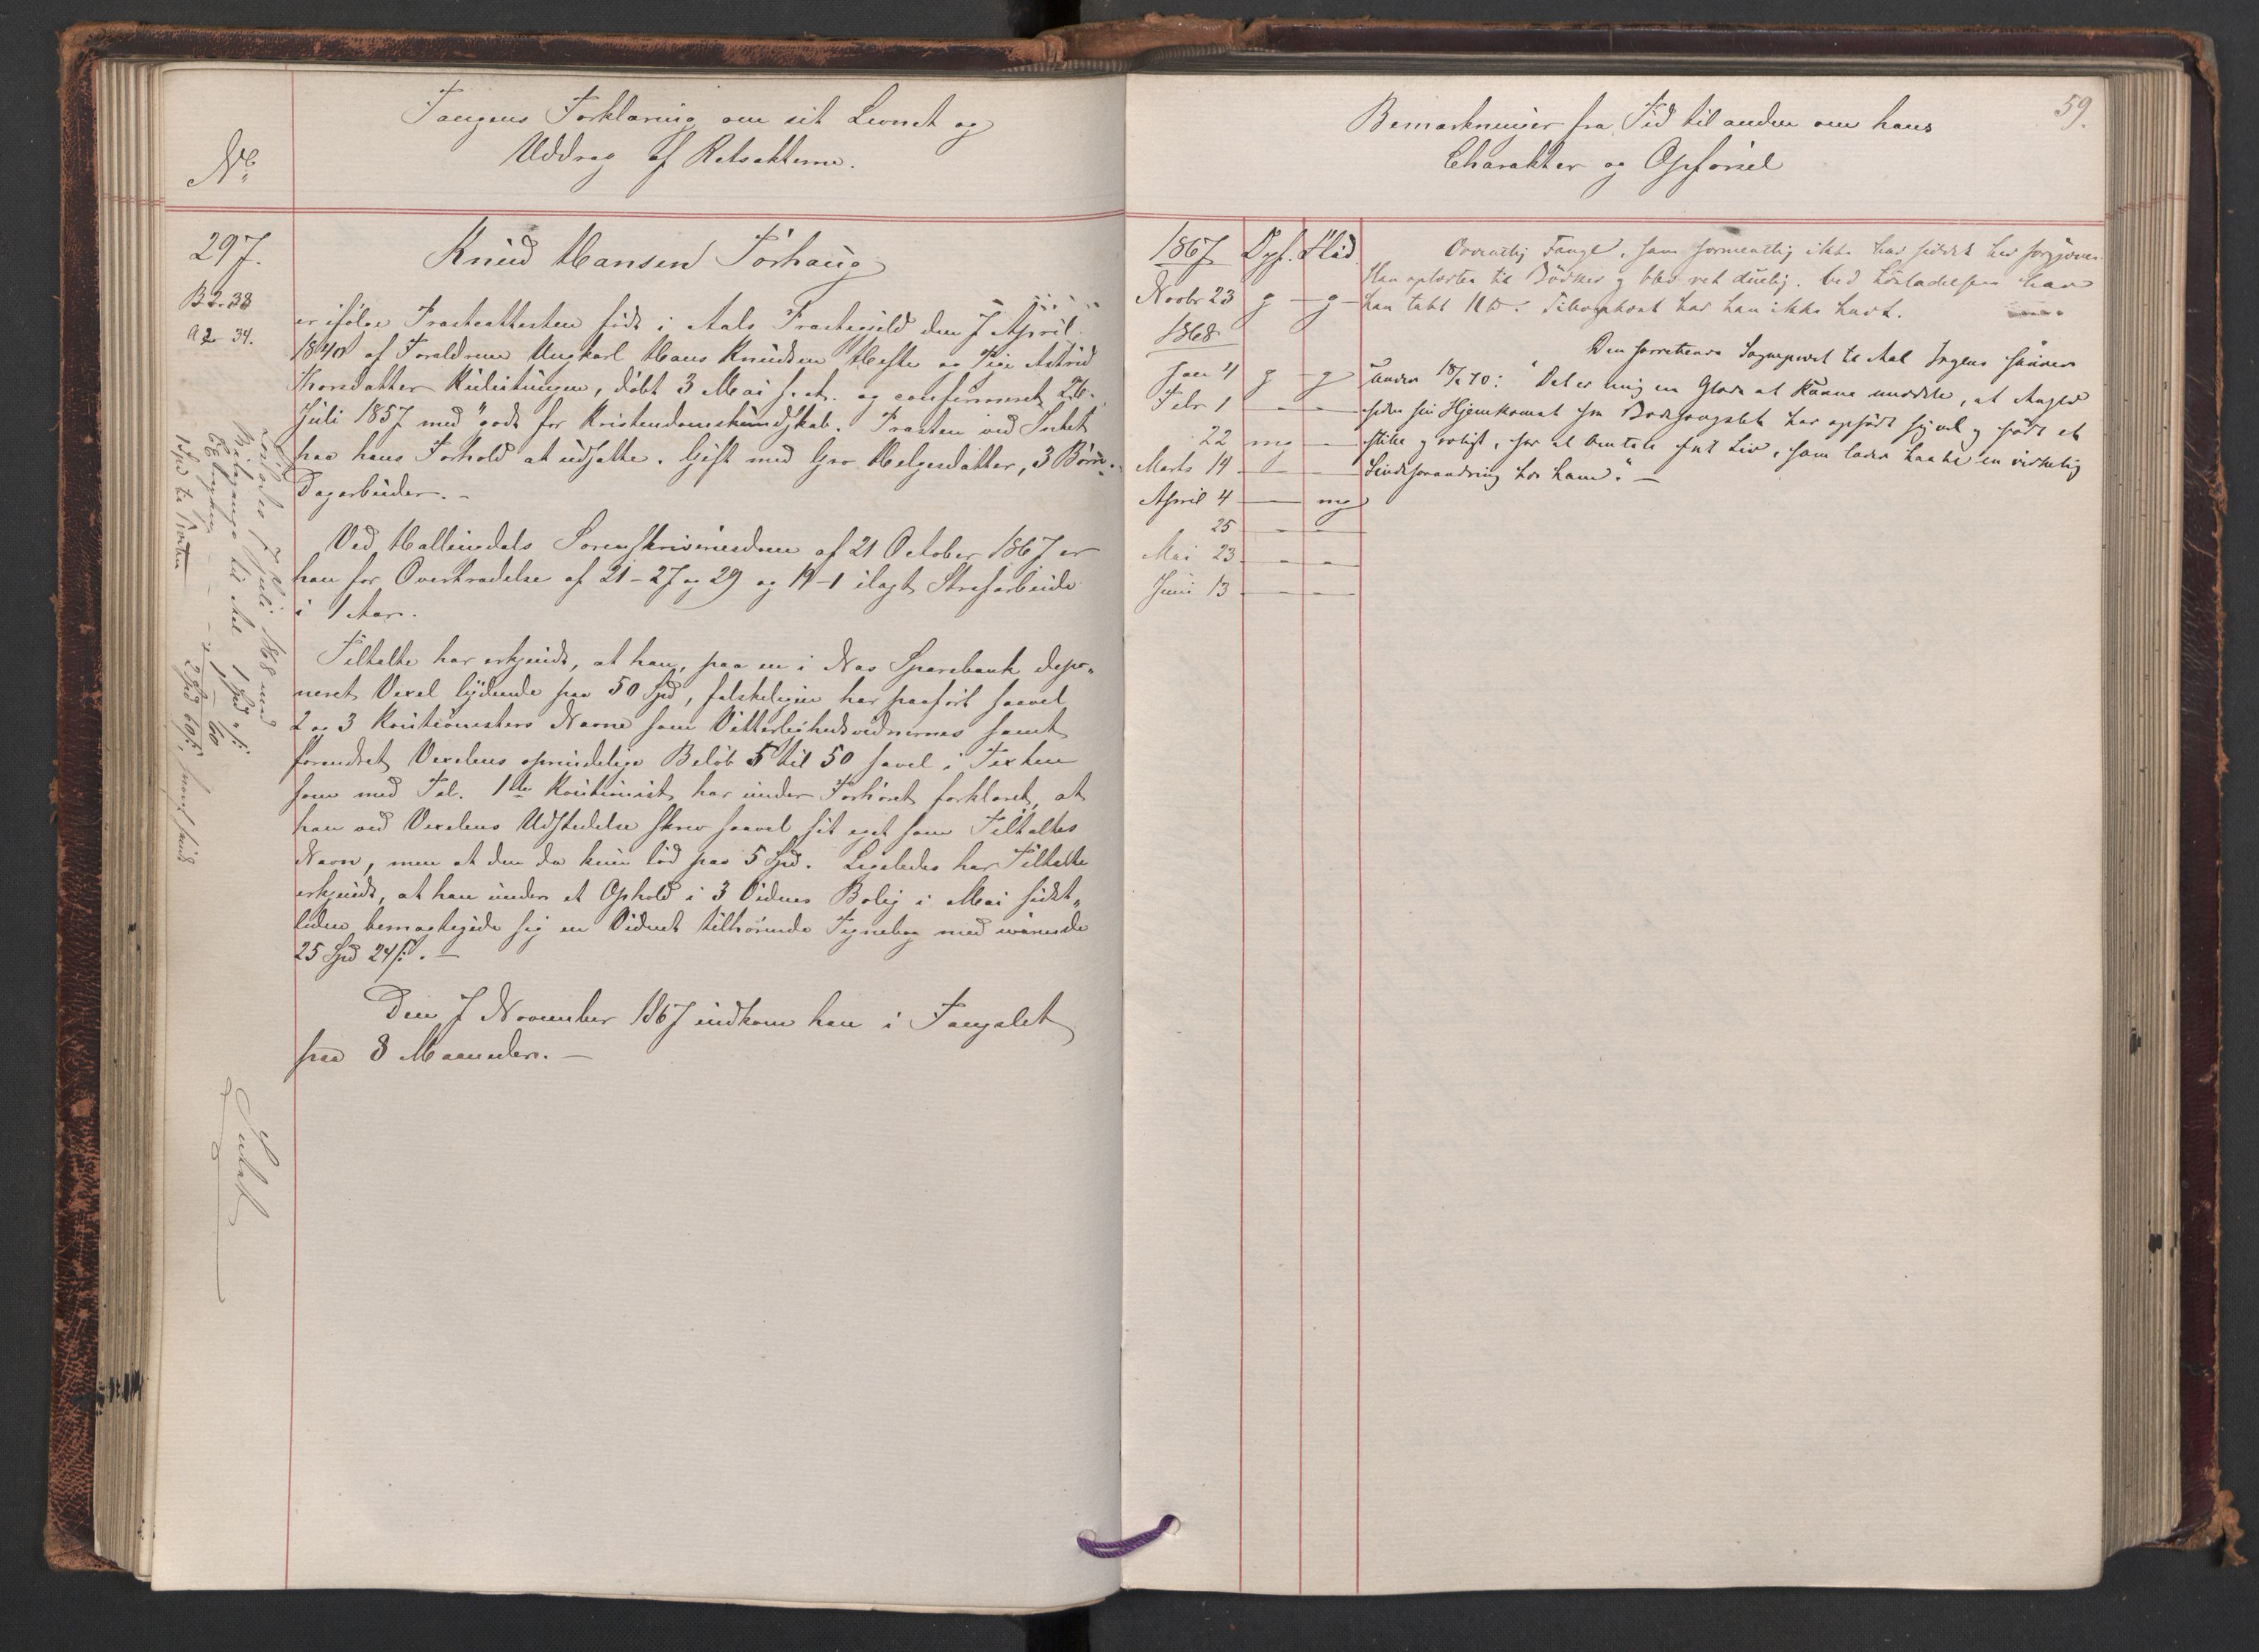 Fangens Forklaring om sit Levnet og
Uddrag af Retsakterne.
No
297.
B 2. 38
A 2. 34.
Knud Hansen Torhaug
er ifølge Præsteattesten født i Aals Præstegjeld den 7 April
1840 af Forældrene Ungkarl Hans Knudsen Hefte og Pige Astrid
Thorsdatter Kulutungen, døbt 3 Mai s. A. og confirmeret 26.
Juli 1857 med "godt" for Kristendomskundskab. Præsten ved Intet
paa hans Forhold at udsætte. Gift med Gro Helgesdatter, 3 Børn.
Dagarbeider. –
Ved Hallingdals Sorenskriveriesdom af 21 October 1867 er
han for Overtrædelse af 21-27 og 29 og 19-1 ilagt Strafarbeide
i 1 Aar.
Tiltalte har erkjendt, at han, paa en i Næs Sparebank depo„
neret Vexel lydende paa 50 Spd, falskeligen har paaført saavel
2 og 3 Kautionisters Navne som Vitterlighedsvidnernes samt
forandret Vexelens oprindelige Beløb 5 til 50 saavel i Texten
som med Tal. 1ste Kautionist har under Forhøret forklaret, at
han ved Vexelens Udstedelse skrev saavel sit eget som Tiltaltes
Navn, men at den da kun lød paa 5 Spd. Ligeledes har Tiltalte
erkjendt, at han under et Ophold i 3 Vidnes Bolig i Mai sidst„
leden bemægtigede sig en Vidnet tilhørende Tegnebog med iværende
25 Spd 24 ß. –
Den 7 November 1867 indkom han i Fængslet
paa 8 Maaneder. –
Løslades 7 Juli 1868 med
Reisepenge til Aal 1 Spd " ß
1 – 60
2 Spd 60 ß,
Bemærkninger fra Tid til anden om hans
Charakter og Opførsel
59.
1867 Opf. Flid
Novbr 23 g – g –
1868
Jan 4 g – g
Febr 1 — —
22 mg —
Marts 14 — —
April 4 — mg
25 — —
Mai 23 — —
Juni 13 — —
Ordentlig Fange, som formentlig ikke har siddet her forgjæves.
Han oplærtes til Bødker og blev ret duelig. Ved Løsladelsen har
han tabt 11 ℔. Tilbagefald har han ikke havt.
Den forrettende Sogneprest til Aal Ingens skriver
under 18/2 70: "Det er mig en Glæde at kunne meddele, at Angj.
siden sin Hjemkomst fra Bodsfængslet har opført sig vel og ført et
stille og roligt, for at omtale sit Liv, som lader haabe en virkelig
Sindsforandring hos ham." –